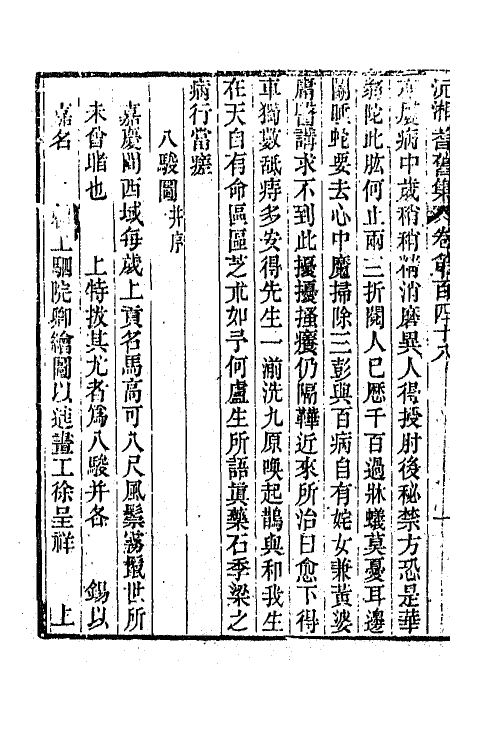 沅湘耆舊集 卷第百四十八 一
病中歲稍稍精消磨異人得授肘後秘禁方恐是華
陀此肱何止兩三折閱人已歷千百過牀蟻莫憂耳邊
鬬睡蛇要去心中魔掃除三彭與百病自有姹女兼黃婆
庸醫講求不到此擾擾搔癢仍隔鞾近來所治曰愈下得
車獨數舐痔多安得先生一湔洗九原喚起鵲與和我生
在天自有命區區芝朮如予何盧生所語眞藥石季梁之
病行當瘥
八駿圖并序
嘉慶間西域每歲上貢名馬高可八尺風鬃霧鬣世所
未曾睹也 上特拔其尤者爲八駿并各 錫以
嘉名 上駟院卿繪圖以進畫工徐呈祥 上